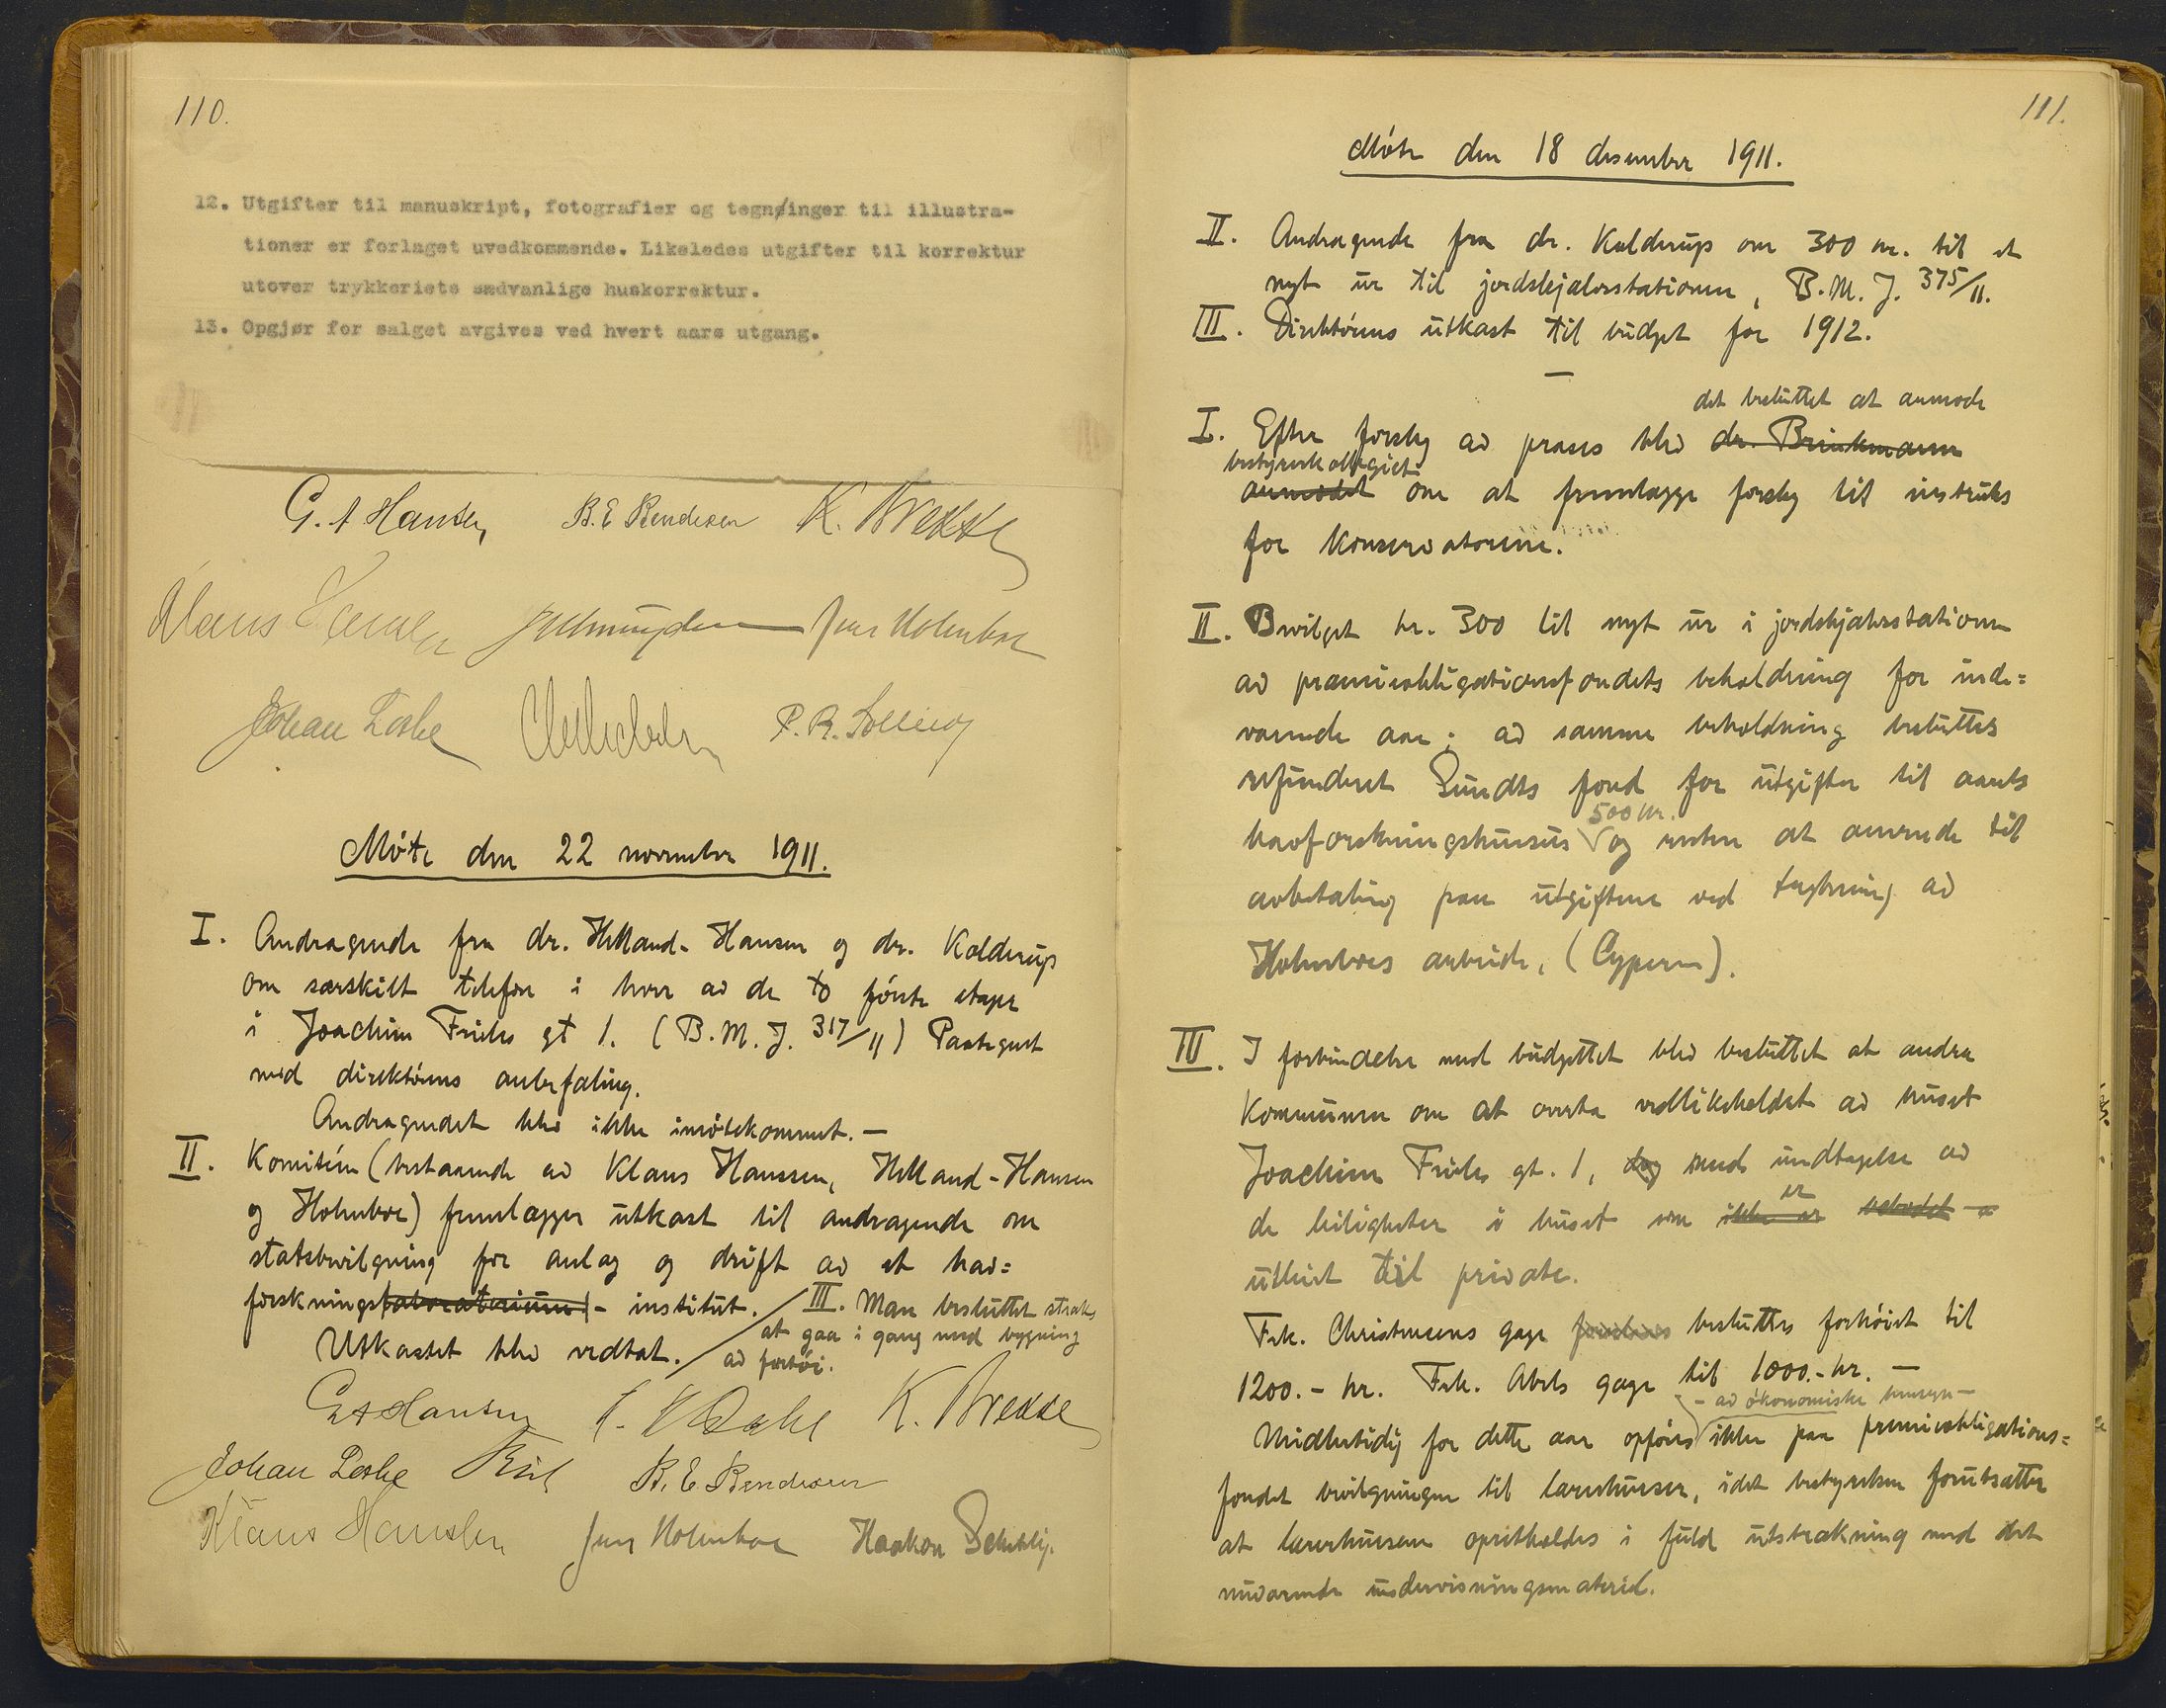 110.
12. Utgifter til manuskript, fotografier og tegninger til illustra-
tioner er forlaget uvedkommende. Likeledes utgifter til korrektur
utover trykkeriets sædvanlige huskorrektur.
13. Opgjør for salget avgives ved hvert aars utgang.
G. A Hansen B. E Bendixen K. Brekke
Klaus Hanssen Jens Holmboe
Johan Loske P. R. Sollied
Møte den 22 november 1911.
I. Andragende fra dr. Helland-Hansen og dr. Kolderup
om særskilt telefon i hver av de to første etager
i Joachim Frieles gt 1. (B.M.J. 317/11) Paategnet
med direktørens anbefaling.
Andragendet blev ikke imøtekommet. —
II. Komitéen (bestaaende av Klaus Hanssen, Helland-Hansen
og Holmboe) fremlægger utkast til andragende om
statsbevilgning for anlæg og drift av et hav=
forsknings laboratorium - institut. / III. Man besluttet straks
at gaa i gang med bygning
Utkastet blev vedtat. / av fartøi.
G A Hansen Dahl K. Brekke
Johan Loske B. E. Bendixen
Klaus Hanssen Jens Holmboe Haakon Schetelig.
111.
Møte den 18 desember 1911.
II. Andragende fra dr. Kolderup om 300 kr. til et
nyt ur til jordskjælvsstationen, B.M.J. 375/11.
III. Direktørens utkast til budget for 1912.
—
det besluttet at anmode
I. Efter forslag av præses blev dr. Brinkmann
bestyrerkollegiet
anmodet om at fremlægge forslag til instruks
for konservatorene.
II. Bevilget kr. 300 til nyt ur i jordskjælvsstationen
av præmieobligationsfondets beholdning for inde=
værende aar; av samme beholdning besluttes
refunderet Sundts fond for utgifter til aarets
500 kr.
havforskningskursus og resten at anvende til
avbetaling paa utgiftene ved trykning av
Holmboes arbeide, (Cypern).
III. I forbindelse med budgettet blev besluttet at andra
Kommunen om at overta vedlikeholdet av huset
Joachim Frieles gt. 1, dog med undtagelse av
er
de leiligheter i huset som ikke er
utleiet til private.
Frk. Christensens gage besluttes forhøiet til
1200.- kr. Frk. Abels gage til 1000.- kr. —
- av økonomiske hensyn -
Midlertidig for dette aar opføres ikke paa premieobligations=
fondet bevilgningen til lærerkurser, idet bestyrelsen forutsætter
at lærerkursene opretholdes i fuld utstrækning med det
nuværende undervisningsmateriel.